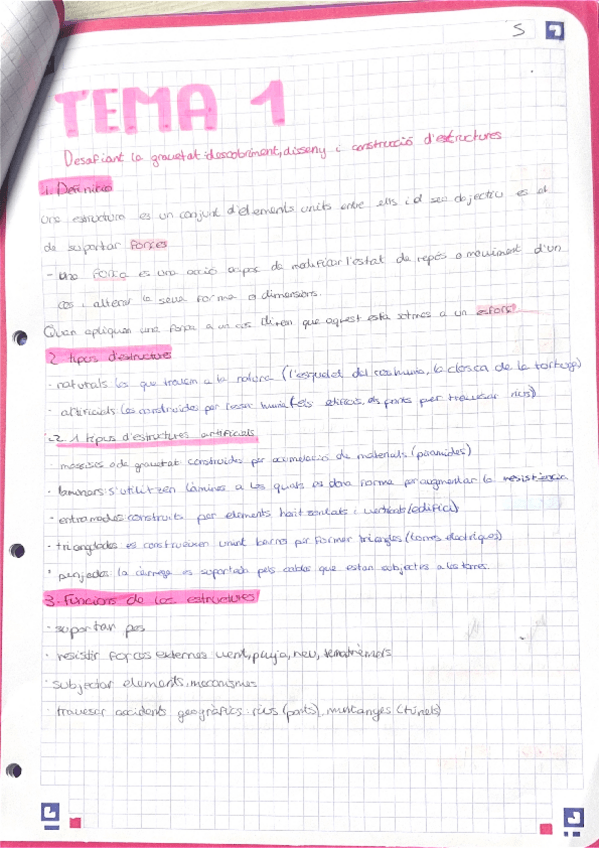 S
TEMA 1
Desafiant la gravetat: descobriment, disseny i construcció d'estructures
1. Definició
una estructura es un conjunt d'elements units entre ells i el seu objectiu es el
de suportar forces
- una força es una acció capas de modificar l'estat de repós o moviment d'un
cos i alterar la seua forma o dimensions.
Quan apliquem una força a un cos diem que aquest esta sotmes a un esforç
2 tipos d'estructures
- naturals los que trovem a la natura (l'esquelet del cos huma, la closca de la tortuga)
- artificials las construides per l'esser huma (els edificis, els ponts per travesar rius)
2 1 tipus d'estructures artificials
· massises o de gravetat construides per acumelació de materials (piramides)
· laminars s'utilitzen làmines a les quals es dona forma per augmentar la resistència
· entramades construits per elements horitzontals i verticals (edifici)
· triangulades es construeixen unint barres per formar triangles (torres electriques)
· penjades: la càrrega es suportada pels cables que estan subjectes a les torres.
3. Funcions de les estructures
· suportar pes
· resistir forces externes vent, pluja, neu, terratrèmols
· subjectar elements, mecanismes
· travesar accidents geogràfics: rius (ponts), muntanyes (túnels)